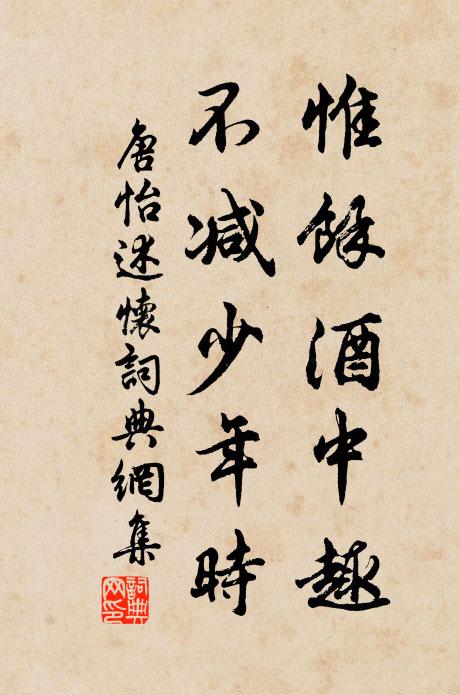 惟餘酒中趣
不減少年時
唐怡述懷詞典網集
詞典網印